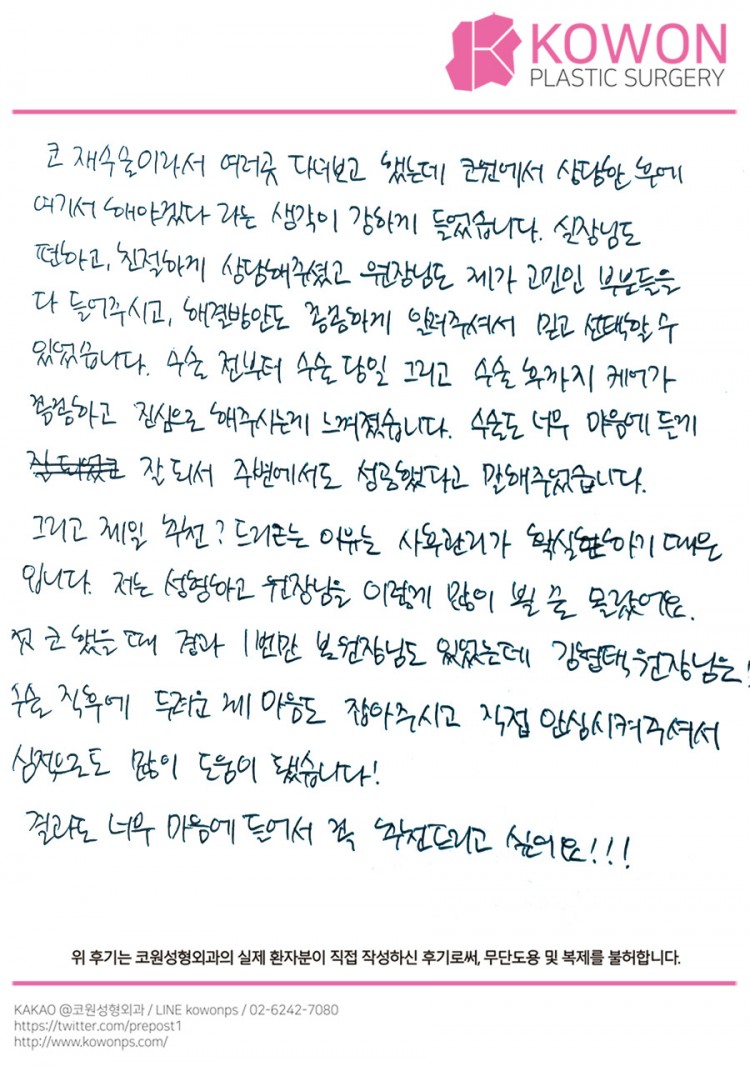 KOWON
PLASTIC SURGERY
코 재수술이라서 여러곳 다녀보고 했는데 코원에서 상담한 후에
여기서 해야겠다 라는 생각이 강하게 들었습니다. 실장님도
편하고, 친절하게 상담해주셨고 원장님도 제가 고민인 부분들을
다 들어주시고, 해결방안도 꼼꼼하게 알려주셔서 믿고 선택할 수
있었습니다. 수술 전부터 수술 당일 그리고 수술 후까지 케어가
꼼꼼하고 진심으로 해주시는게 느껴졌습니다. 수술도 너무 마음에 들게
잘 되서 주변에서도 성공했다고 말해주었습니다.
그리고 제일 추천? 드리는 이유는 사후관리가 확실하기 때문
입니다. 저는 성형하고 원장님을 이렇게 많이 뵐 줄 몰랐어요.
첫 코 했을 때 경과 1번만 본 원장님도 있었는데 김형택 원장님은!
수술 직후에 두려운 제 마음도 잡아주시고 직접 안심시켜주셔서
심적으로도 많이 도움이 됐습니다!
결과도 너무 마음에 들어서 꼭 추천드리고 싶어요!!!
위 후기는 코원성형외과의 실제 환자분이 직접 작성하신 후기로써, 무단도용 및 복제를 불허합니다.
KAKAO @코원성형외과 / LINE kowonps / 02-6242-7080
https://twitter.com/prepost1
http://www.kowonps.com/